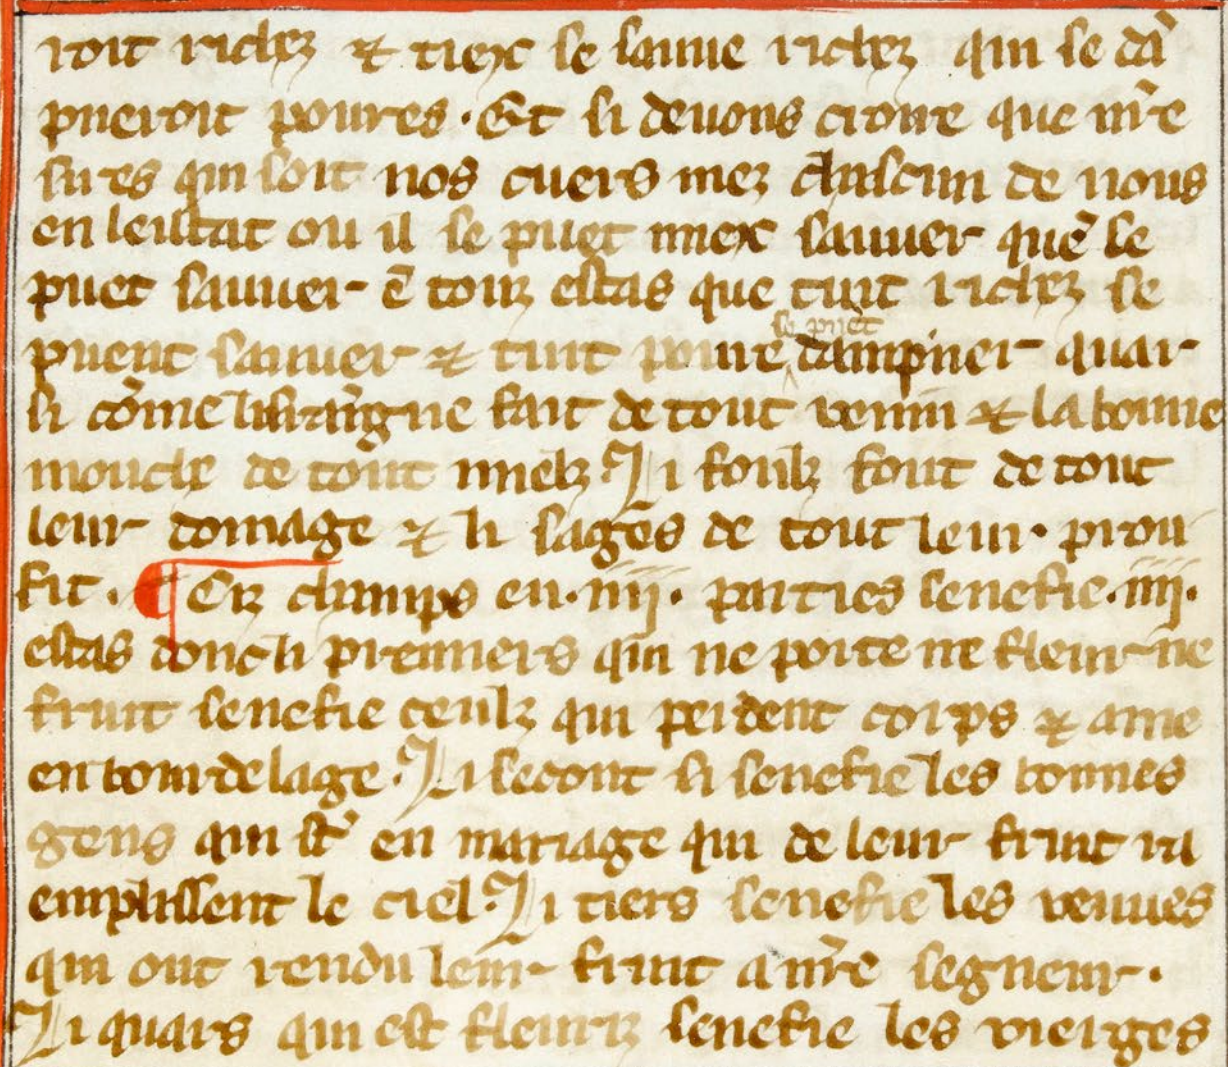 roit richez ⁊ tiex se sauue richez qui se dā
pneroit poures · Et si deuons croire que nr̄e
sires qui soit nos cuers mez chascun de nous
en lestat ou il se puet miex sauuer que le
puet sauuer ē touz estas que tuit richez se
puent sauuer ⁊ tuit poure se puet dampner quar
si cōme liraigne fait de tout venin ⁊ la bonne
mouche de tout miels Li foulz font de tout
leur domage ⁊ li sages de tout leur prou
fit . ¶ Cez champs en · iiij · parties senefie · iiij ·
estas donc li premiers qui ne porte ne fleur ne
fruit senefie ceulz qui perdent corps ⁊ ame
en bourdelage . Li secont si senefie les bonnes
gens qui st̄ en mariage qui de leur fruit ra
emplissent le ciel . Li tiers senefie les veuues
qui ont rendu leur fruit a nr̄e segneur .
Li quars qui est fleuriz senefie les vierges